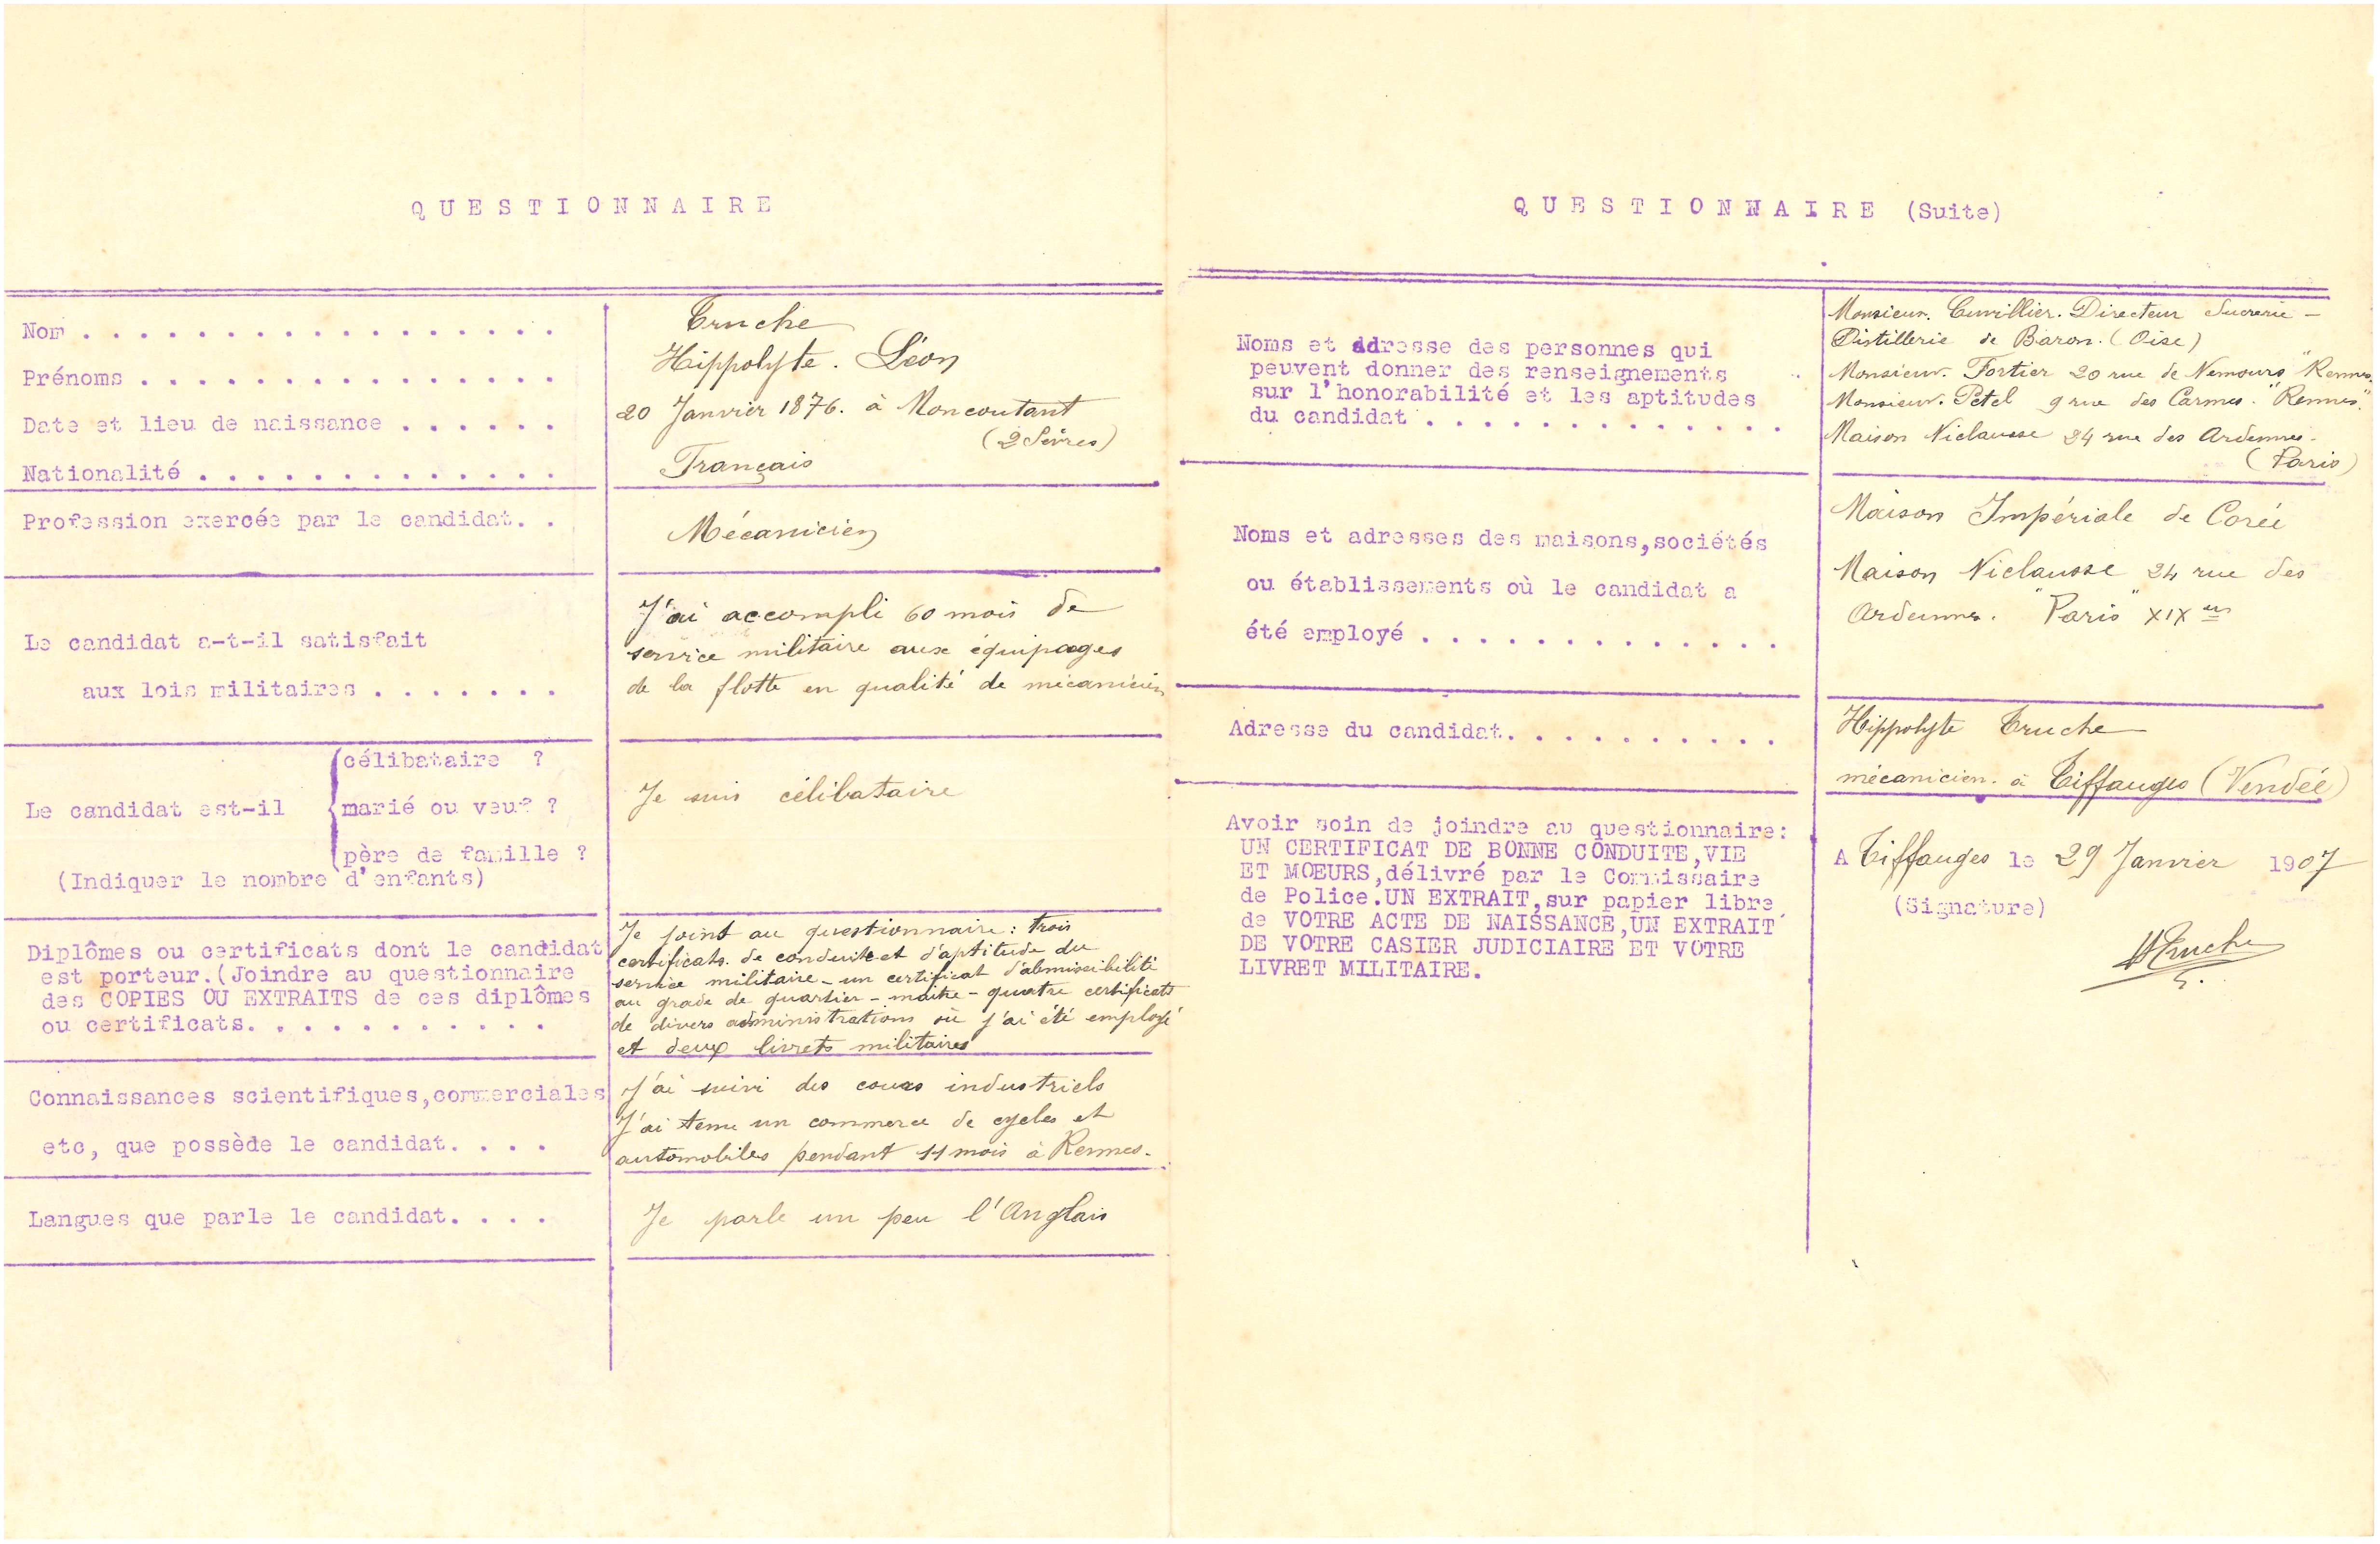 QUESTIONNAIRE
Nom . . . . . . . . . . . . . . . . . Truche
Prénoms . . . . . . . . . . . . . . . Hippolyte. Léon
Date et lieu de naissance . . . . . . 20 Janvier 1876. à Moncoutant
(2 Sèvres)
Nationalité . . . . . . . . . . . . . Français
Profession exercée par le candidat. . Mécanicien
Le candidat a-t-il satisfait
aux lois militaires . . . . . . .
J'ai accompli 60 mois de
service militaire aux équipages
de la flotte en qualité de mécanicien
Le candidat est-il
célibataire ?
marié ou veuf ?
père de famille ?
(Indiquer le nombre d'enfants)
Je suis célibataire
Diplômes ou certificats dont le candidat
est porteur.(Joindre au questionnaire
des COPIES OU EXTRAITS de ces diplômes
ou certificats. . . . . . . . . . .
Je joint au questionnaire : trois
certificats. de conduite et d'aptitude du
service militaire - un certificat d'admissibilité
au grade de quartier-maître - quatre certificats
de divers administrations où j'ai été employé
et deux livrets militaires
Connaissances scientifiques,commerciales
etc, que possède le candidat. . . .
J'ai suivi des cours industriels
J'ai tenu un commerce de cycles et
automobiles pendant 11 mois à Rennes.
Langues que parle le candidat. . . .
Je parle un peu l'Anglais
QUESTIONNAIRE (Suite)
Noms et adresse des personnes qui
peuvent donner des renseignements
sur l'honorabilité et les aptitudes
du candidat . . . . . . . . . . . . .
Monsieur. Cuvillier. Directeur Sucrerie -
Distillerie de Baron. (Oise)
Monsieur. Fortier 20 rue de Nemours "Rennes"
Monsieur. Petel 9 rue des Carmes. "Rennes".
Maison Niclausse 24 rue des Ardennes.
(Paris)
Noms et adresses des maisons,sociétés
ou établissements où le candidat a
été employé . . . . . . . . . . . . .
Maison Impériale de Corée
Maison Niclausse 24 rue des
Ardennes. "Paris" XIX
Adresse du candidat. . . . . . . . . .
Hippolyte Truche
mécanicien. à Tiffauges (Vendée)
Avoir soin de joindre au questionnaire:
UN CERTIFICAT DE BONNE CONDUITE,VIE
ET MŒURS,délivré par le Commissaire
de Police.UN EXTRAIT,sur papier libre
de VOTRE ACTE DE NAISSANCE,UN EXTRAIT
DE VOTRE CASIER JUDICIAIRE ET VOTRE
LIVRET MILITAIRE.
A Tiffauges le 29 Janvier 1907
(Signature)
HTruche